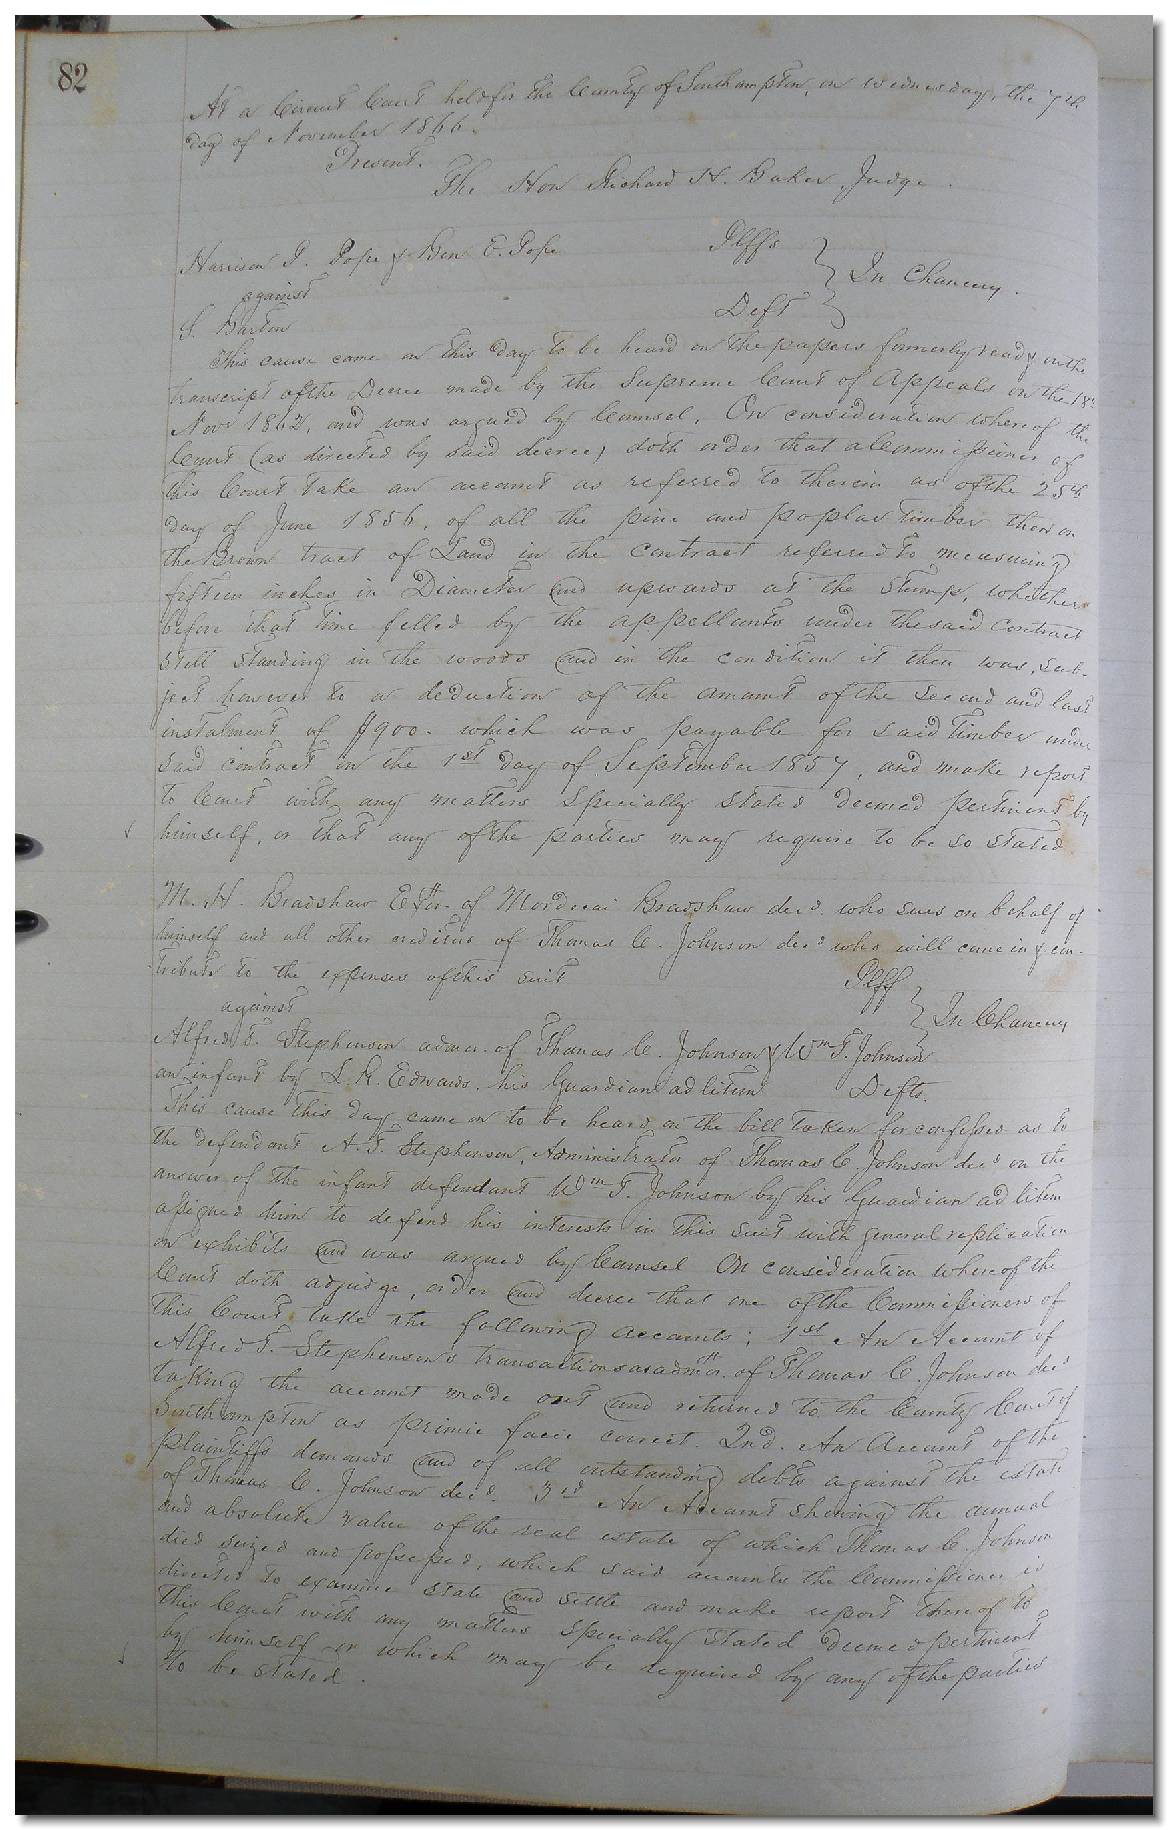 82
At a Circuit Court held for the County of Southampton, on Wednesday, the 7th
day of November 1866.
Present.
The Hon Richard H. Baker, Judge.
Harrison P. Pope & Ben E. Pope Plffs
against } In Chancery.
S. Barton Deft
This cause came on this day to be heard on the papers formerly read & on the
transcript of the Decree made by the Supreme Court of Appeals on the 18th
Novr 1862, and was argued by Counsel, On consideration whereof the
Court (as directed by said decree) doth order that a Commissioner of
this Court take an account as referred to therein as of the 25th
day of June 1856, of all the pine and poplar timber then on
the Brown tract of Land in the contract referred to measuring
fifteen inches in Diameter and upwards at the stump, whether
before that time felled by the appellants under the said Contract
still standing in the woods and in the condition it then was, sub-
ject however to a deduction of the amount of the second and last
instalment of $900. which was payable for said timber under
said contract on the 1st day of September 1857, and make report
to Court with any matters specially stated deemed pertinent by
himself, or that any of the parties may require to be so stated
M. H. Bradshaw Extr. of Mordecai Bradshaw decd. who sues on behalf of
himself and all other creditors of Thomas C. Johnson decd who will come in & con-
tribute to the expenses of this suit Plff
against } In Chancery
Alfred T. Stephenson admr. of Thomas C. Johnson & Wm T. Johnson
an infant by L. R. Edwards, his Guardian ad litem Defts.
This cause this day came on to be heard, on the bill taken for confessed as to
the defendant A. T. Stephenson, Administrator of Thomas C. Johnson decd on the
answer of the infant defendant Wm T. Johnson by his Guardian ad litem
assigned him to defend his interests in this suit with general replication
on exhibits and was argued by Counsel On consideration whereof the
Court doth adjudge, order and decree that one of the Commissioners of
this Court take the following accounts; 1st An Account of
Alfred T. Stephenson's transactions as admr. of Thomas C. Johnson decd
taking the account made out and returned to the County Court of
Southampton as primie facie correct. 2nd. An Account of the
plaintiffs demands and of all outstanding debts against the estate
of Thomas C. Johnson decd. 3rd An Account shewing the annual
and absolute value of the real estate of which Thomas C. Johnson
died seized and possessed, which said accounts the Commissioner is
directed to examine state and settle and make report thereof to
this Court with any matters specially stated deemed pertinent
by himself or which may be required by any of the parties
to be stated.